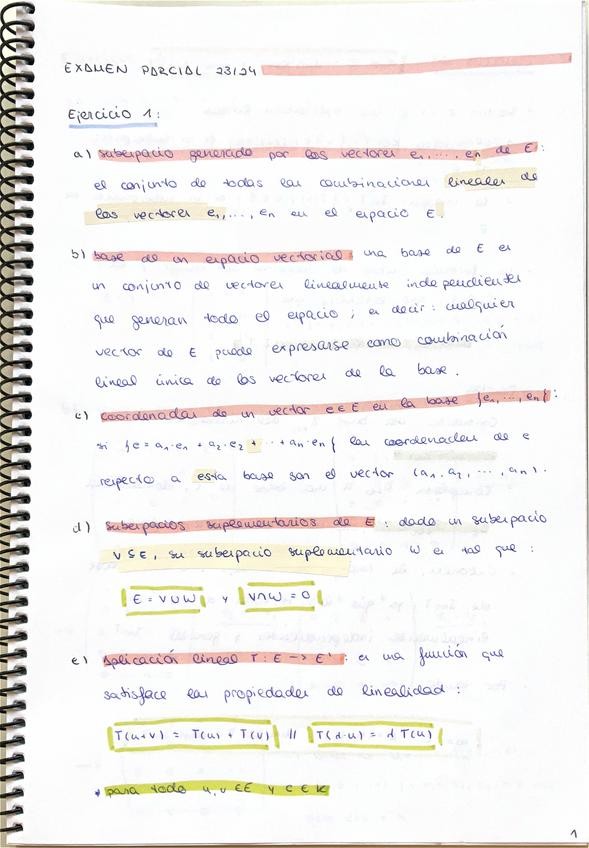 EXAMEN PARCIAL 23/24
Ejercicio 1:
a) subespacio generado por los vectores e₁, ..., eₙ de E:
el conjunto de todas las combinaciones lineales de
los vectores e₁, ..., eₙ en el espacio E.
b) base de un espacio vectorial: una base de E es
un conjunto de vectores linealmente independientes
que generan todo el espacio; es decir: cualquier
vector de E puede expresarse como combinación
lineal única de los vectores de la base.
c) coordenadas de un vector e∈E en la base {e₁, ..., eₙ}:
si {e = a₁·e₁ + a₂·e₂ + ··· + aₙ·eₙ} las coordenadas de e
respecto a esta base son el vector (a₁, a₂, ..., aₙ).
d) subespacios suplementarios de E: dado un subespacio
V ⊆ E, su subespacio suplementario W es tal que:
E = V∪W y V∩W = 0
e) Aplicación lineal T: E → E': es una función que
satisface las propiedades de linealidad:
T(u+v) = T(u) + T(v) // T(λ·u) = λ T(u)
* para todo u, v ∈ E y c ∈ K
1